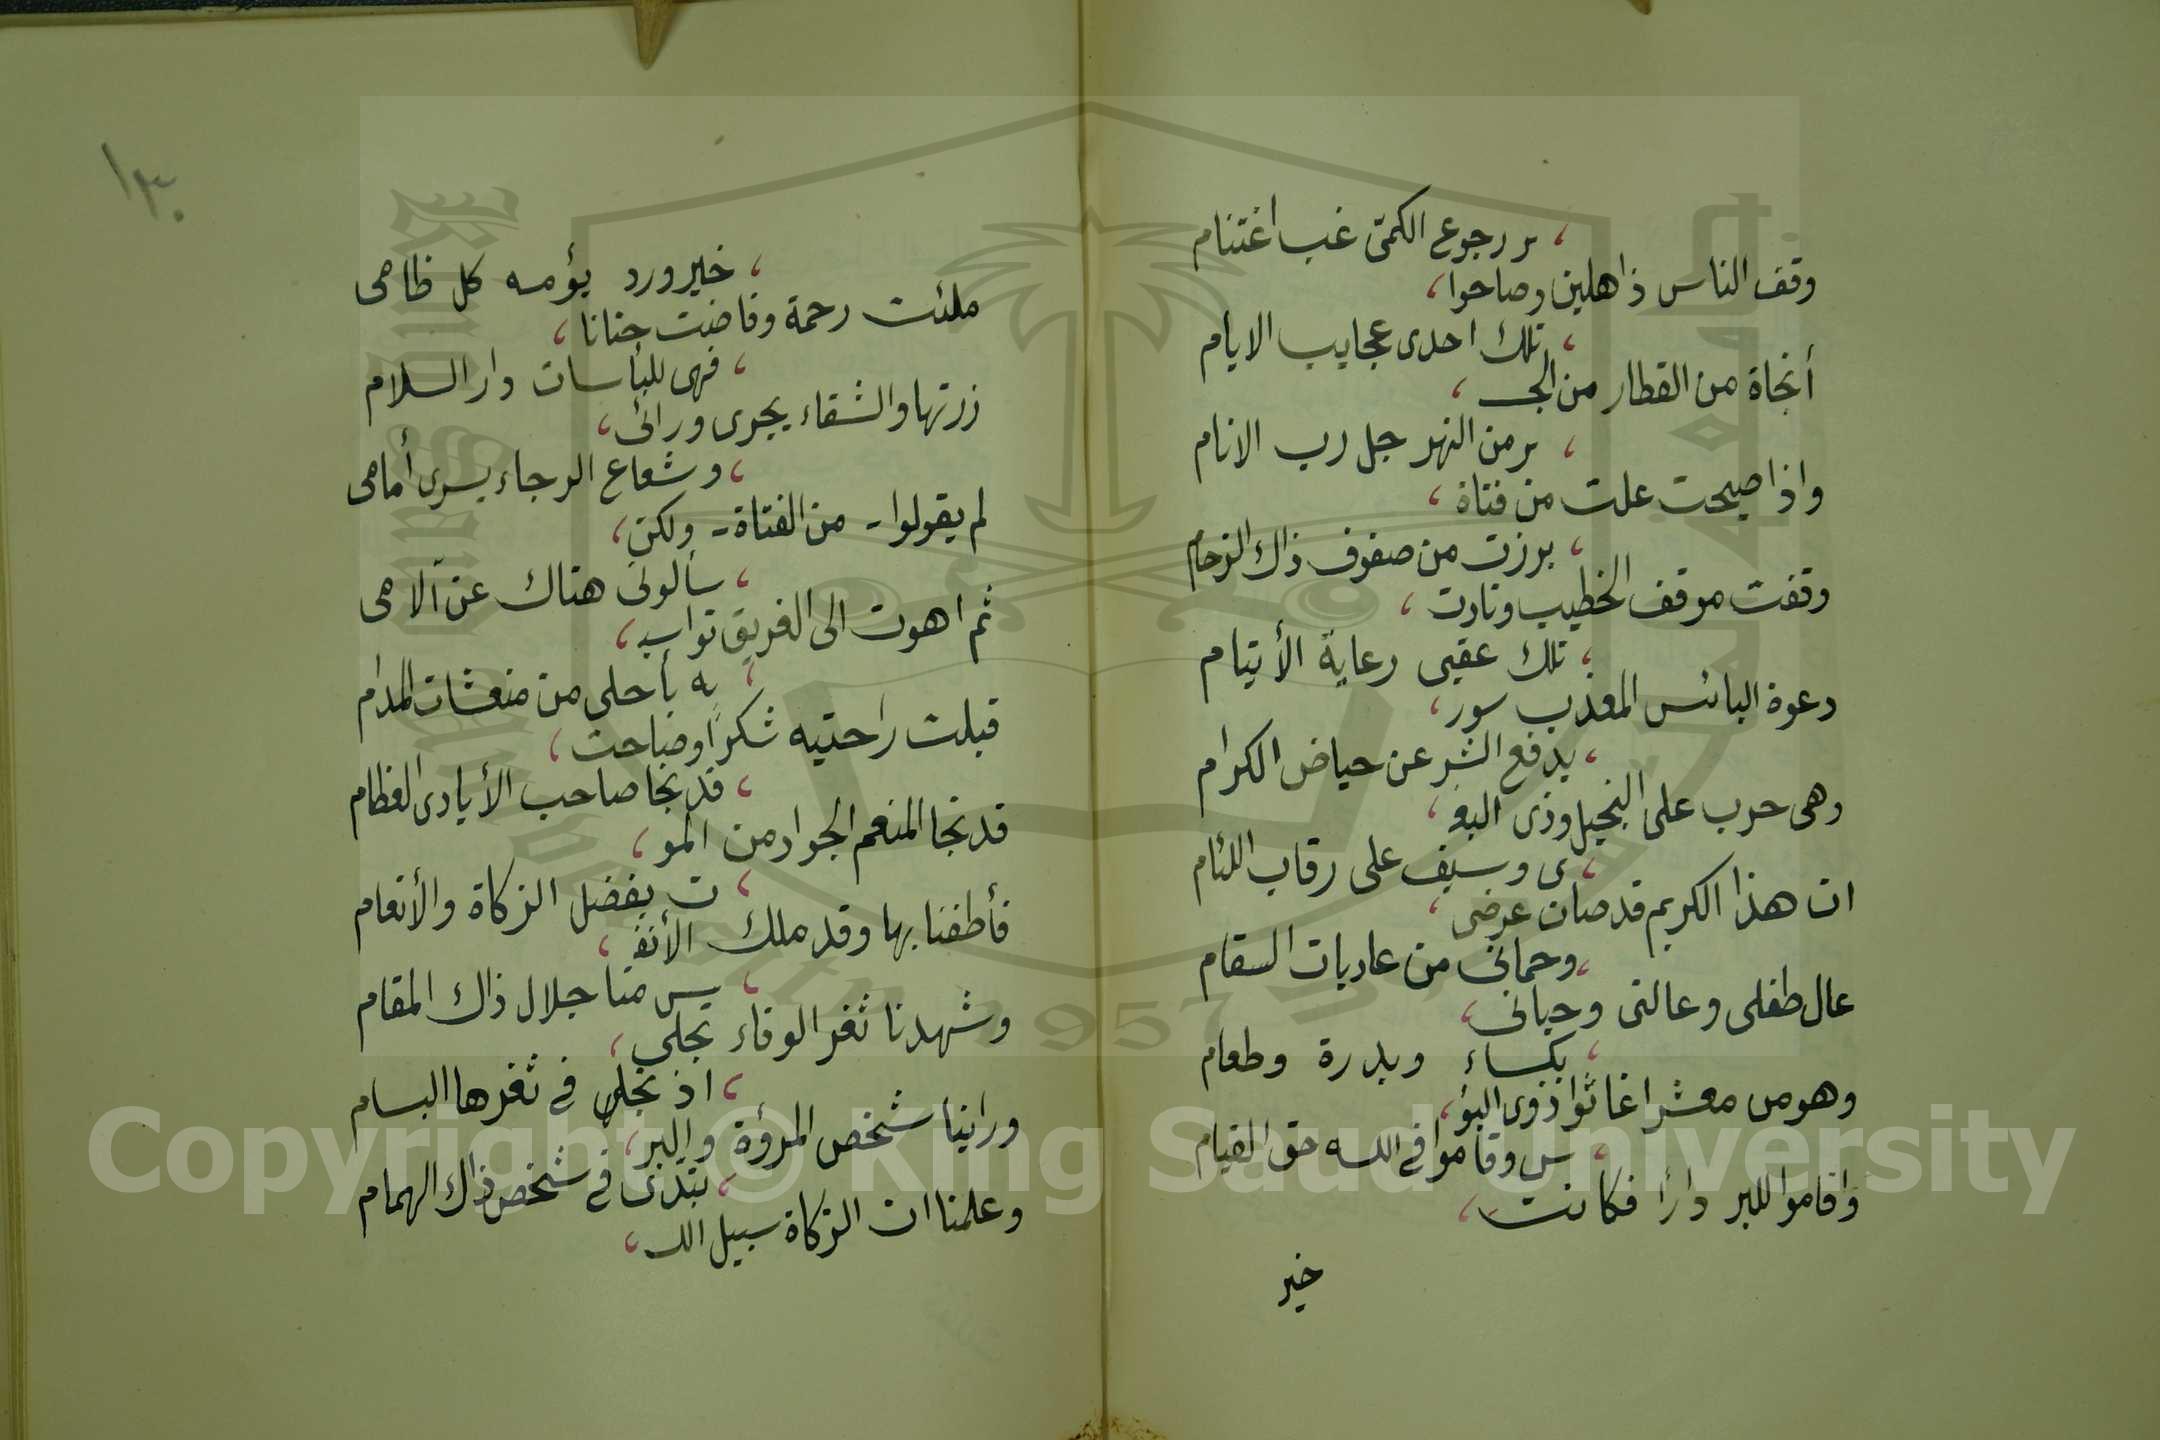 ر رجوع الكمىّ غب اغتنام
وقف الناس ذاهلين وصاحوا
تلك احدى عجايب الايام
أنجاة من القطار من الجـ
ـر من النهر جل رب الانام
واذا صيحت علت من فتاة
برزت من صفوف ذاك الزحام
وقفت موقف الخطيب ونادت
تلك عقبى رعاية الأيتام
دعوة البائس المعذب سور
يدفع الشر عن حياض الكرام
وهى حرب على البخيل وذى البغـ
ـى وسيف على رقاب اللئام
ان هذا الكريم قد صان عرضى
وحمانى من عاديات السقام
عال طفلى وعالنى وحبانى
بكساء وبدرة وطعام
وهو من معشر اغاثوا ذوى البؤ
س وقاموا فى الله حق القيام
واقاموا للبر دارًا فكانت
خير
١٣٠
خير ورد يؤمه كل ظامى
ملئت رحمة وفاضت حنانا
فهى للبأسات دار السلام
زرتها والشقاء يجرى ورائى
وشعاع الرجاء يسرى أمامى
لم يقولوا - من الفتاة - ولكن
سألونى هناك عن آلامى
ثم اهوت الى الغريق تواسـ
ـيه بأحلى من منعشات المدام
قبلت راحتيه شكرًا وصاحت
قد نجا صاحب الأيادى العظام
قد نجا المنعم الجواد من المو
ت بفضل الزكاة والأنعام
فأطفنا بها وقد ملك الأنفـ
ـس منا جلال ذاك المقام
وشهدنا ثغر الوفاء تجلى
اذ تجلى فى ثغرها البسام
ورأينا شخص المرؤة والبر
تبدّى فى شخص ذاك الهمام
وعلمنا ان الزكاة سبيل اللـ
1957
King Saud University
Copyright © King Saud University